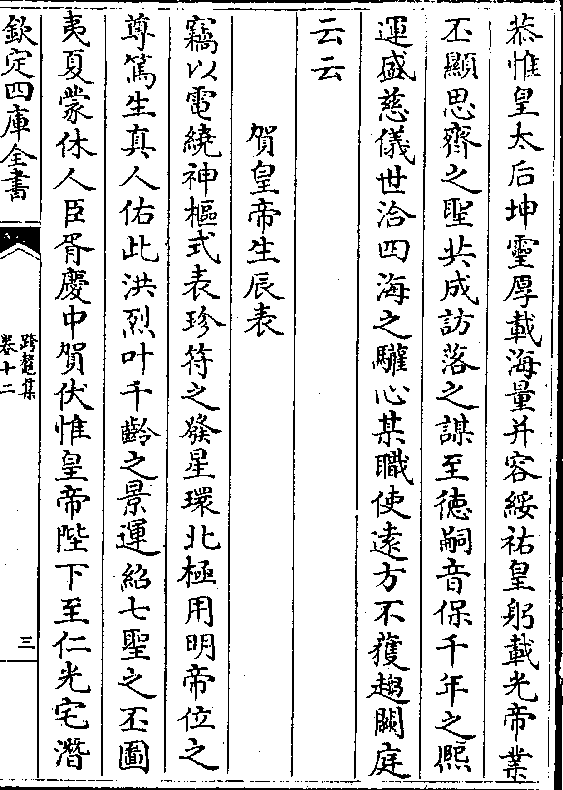 恭惟皇太后坤靈厚載海量并容綏祐皇躬載光帝業
丕顯思齊之聖共成訪落之謀至徳嗣音保千年之熈
運盛慈儀世洽四海之驩心某職使逺方不獲趨闕庭
云云
賀皇帝生辰表
竊以電繞神樞式表珍符之發星環北極用明帝位之
尊篤生真人佑此洪烈叶千齡之景運紹七聖之丕圖
夷夏蒙休人臣胥慶中賀伏惟皇帝陛下至仁光宅濳
欽定四庫全書
跨鼇集
卷十二
三